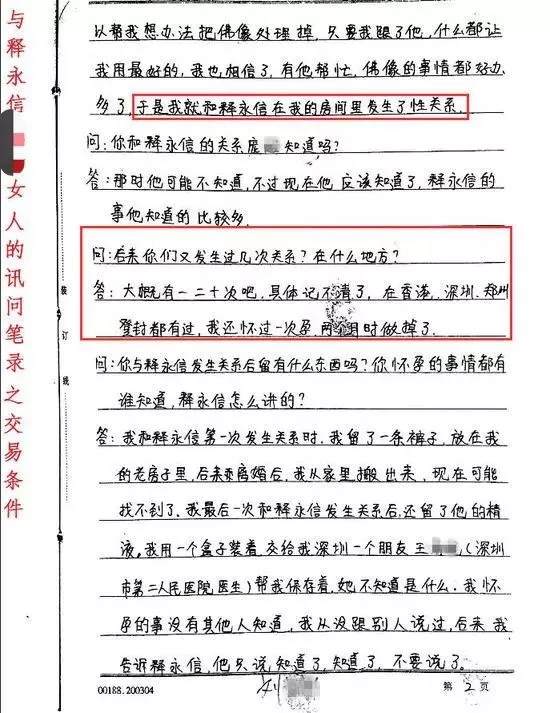 与释永信
女人的讯问笔录之交易条件
装
订
线
以帮我想办法把佛像处理掉,只要我跟了他,什么都让
我用最好的,我也相信了,有他帮忙,佛像的事情都好办
多了,于是我就和释永信在我的房间里发生了性关系。
问:你和释永信的关系庞 知道吗?
答:那时他可能不知道,不过现在他应该知道了,释永信的
事他知道的比较多。
问:后来你们又发生过几次关系?在什么地方?
答:大概有一二十次吧,具体记不清了,在香港、深圳、郑州
登封都有过,我还怀过一次孕,两个月时做掉了。
问:你与释永信发生关系后留有什么东西吗?你怀孕的事情都有
谁知道,释永信怎么讲的?
答:我和释永信第一次发生关系时,我留了一条裤子,放在我
的老房子里,后来我离婚后,我从家里搬出来,现在可能
找不到了,我最后一次和释永信发生关系后,还留了他的精
液,我用一个盒子装着,交给我深圳一个朋友王 (深圳
市第二人民医院医生)帮我保存着,她不知道是什么。我怀
孕的事没有其他人知道,我从没跟别人说过,后来我
告诉释永信,他只说知道了,知道了,不要说了。
00188.200304
刘
第 2 页